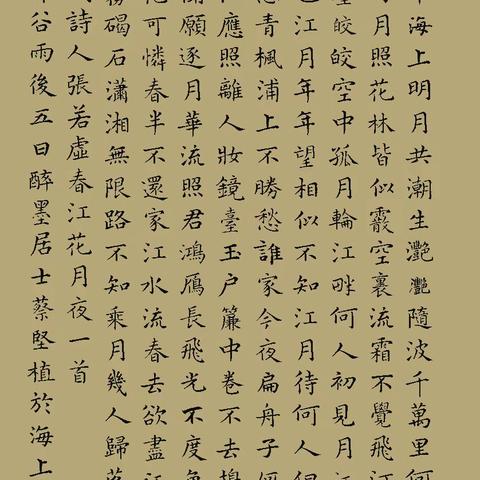 海上明月共潮生灩灩隨波千萬里何
月照花林皆似霰空裏流霜不覺飛汀
皎皎空中孤月輪江畔何人初見月江
江月年年望相似不知江月待何人但
悠青楓浦上不勝愁誰家今夜扁舟子何
應照離人妝鏡臺玉户簾中卷不去擣
聞願逐月華流照君鴻鴈長飛光不度魚
花可憐春半不還家江水流春去欲盡江
霧碣石瀟湘無限路不知乘月幾人歸落
詩人張若虛春江花月夜一首
谷雨後五日醉墨居士蔡堅植於海上